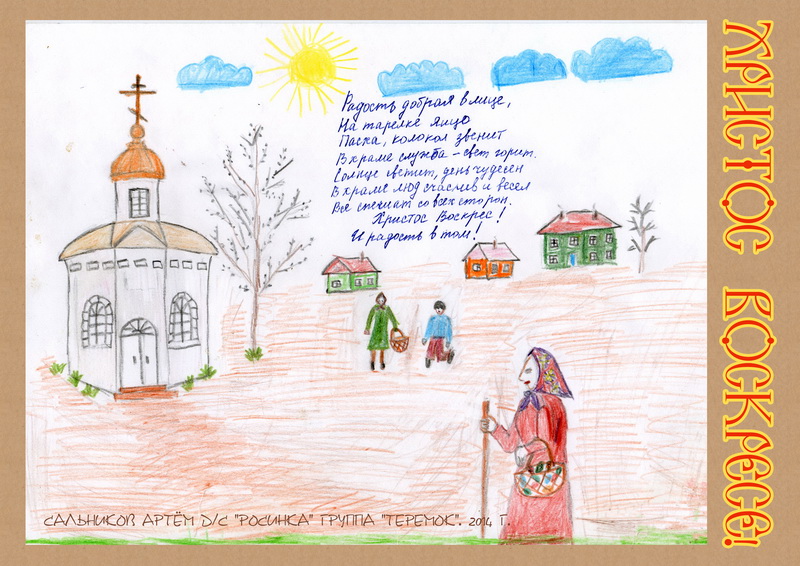 Радость добрая в лице,
На тарелке яйцо
Пасха, колокол звенит
В храме служба - свет горит.
Солнце светит, день чудесен
В храме люд счастлив и весел
Все спешат со всех сторон.
Христос Воскрес!
И радость в том!
САЛЬНИКОВ АРТЁМ Д/С "РОСИНКА" ГРУППА "ТЕРЕМОК". 2014 Г.
ХРИСТОС ВОСКРЕСЕ!